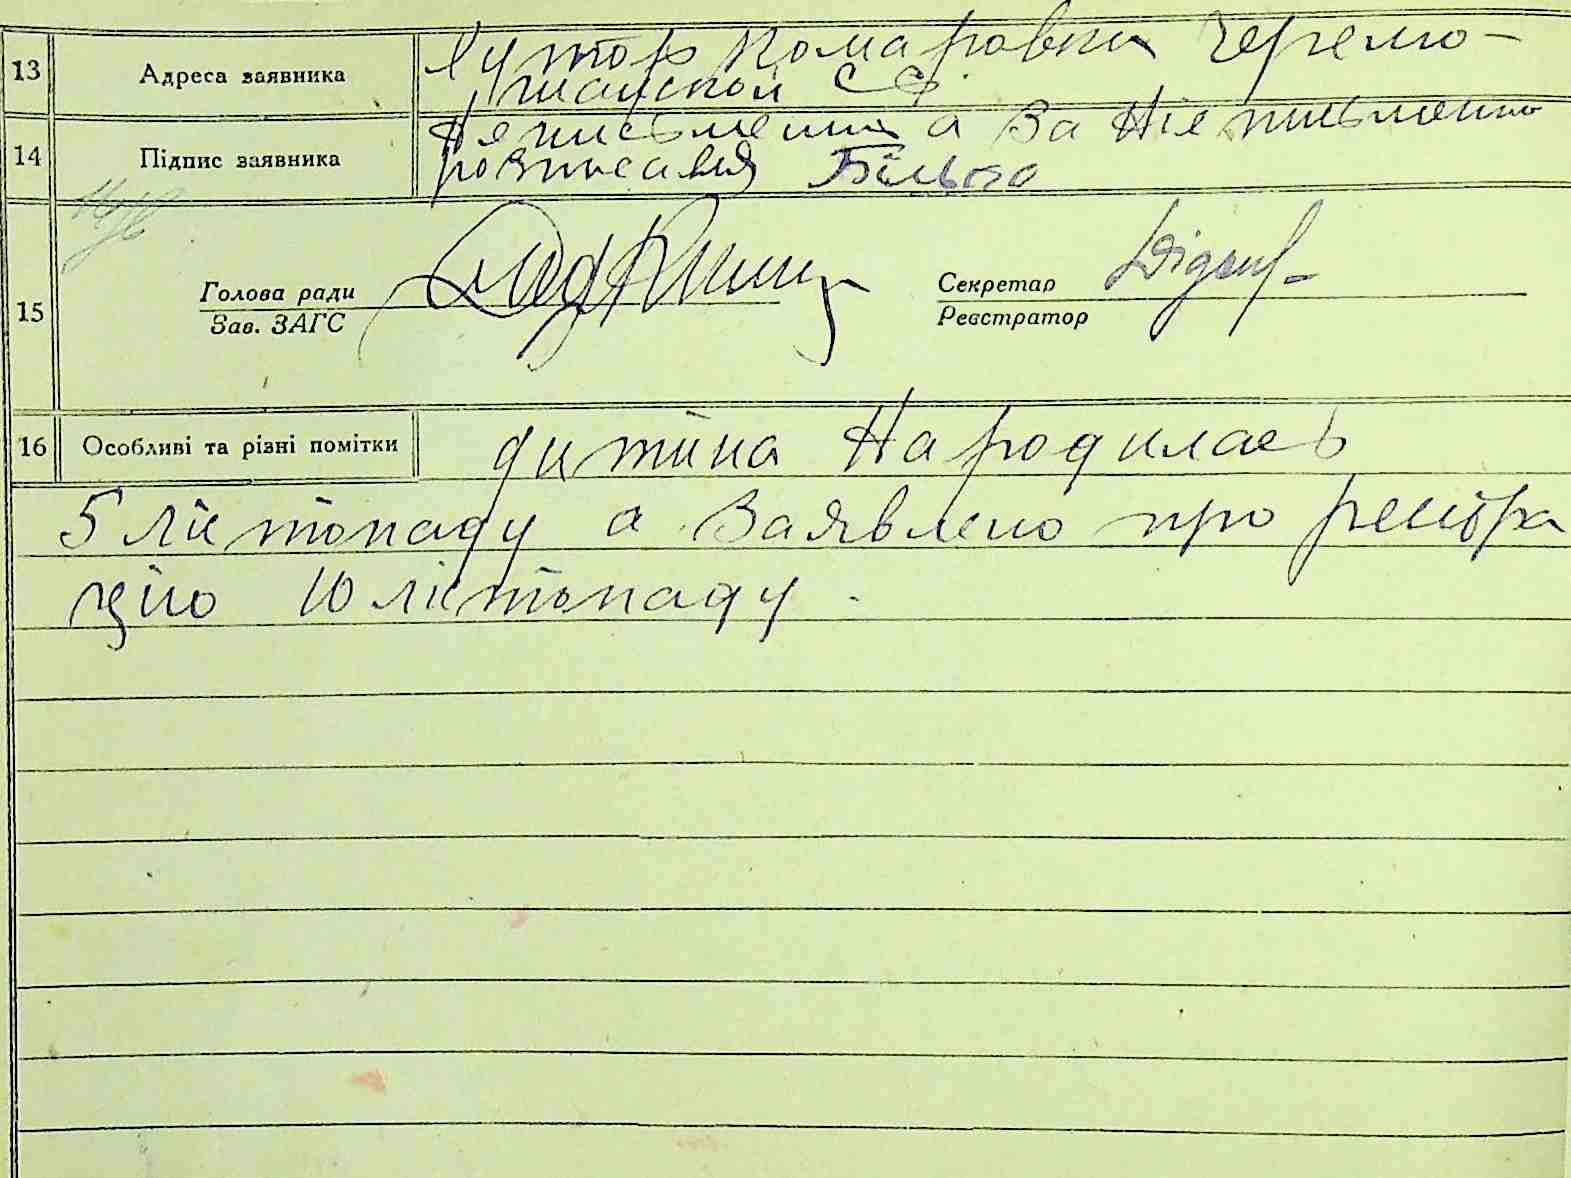 13 Адреса заявника Хутор Комаровка Черемо-
шанской СС
14 Підпис заявника Неписьменна а За Ніе письменно
розписався Билько
15 Голова ради Секретар
Зав. ЗАГС Реєстратор
16 Особливі та різні помітки дитина Народилась
5 лістопаду а Заявлено про регистра
цію 10 лістопаду.